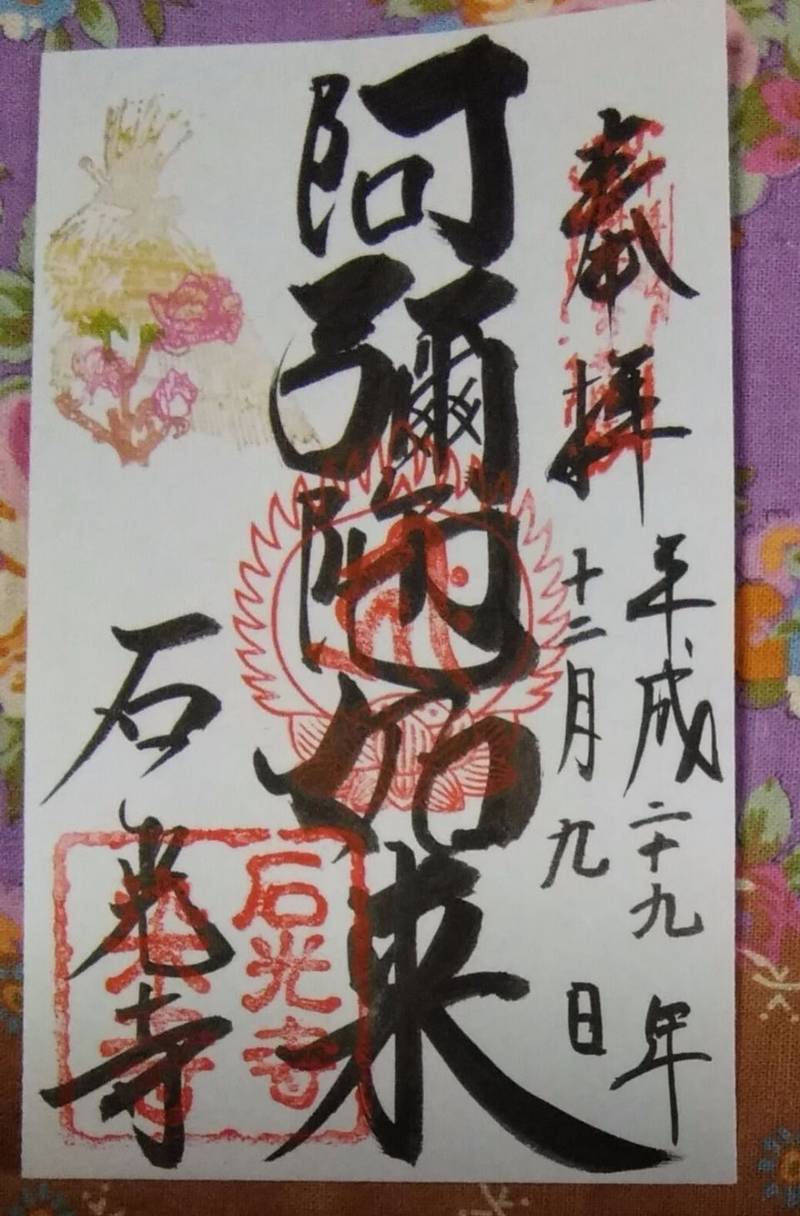 奉拝
平成二十九年
十二月九日
阿彌陀如来
石光寺
石光寺